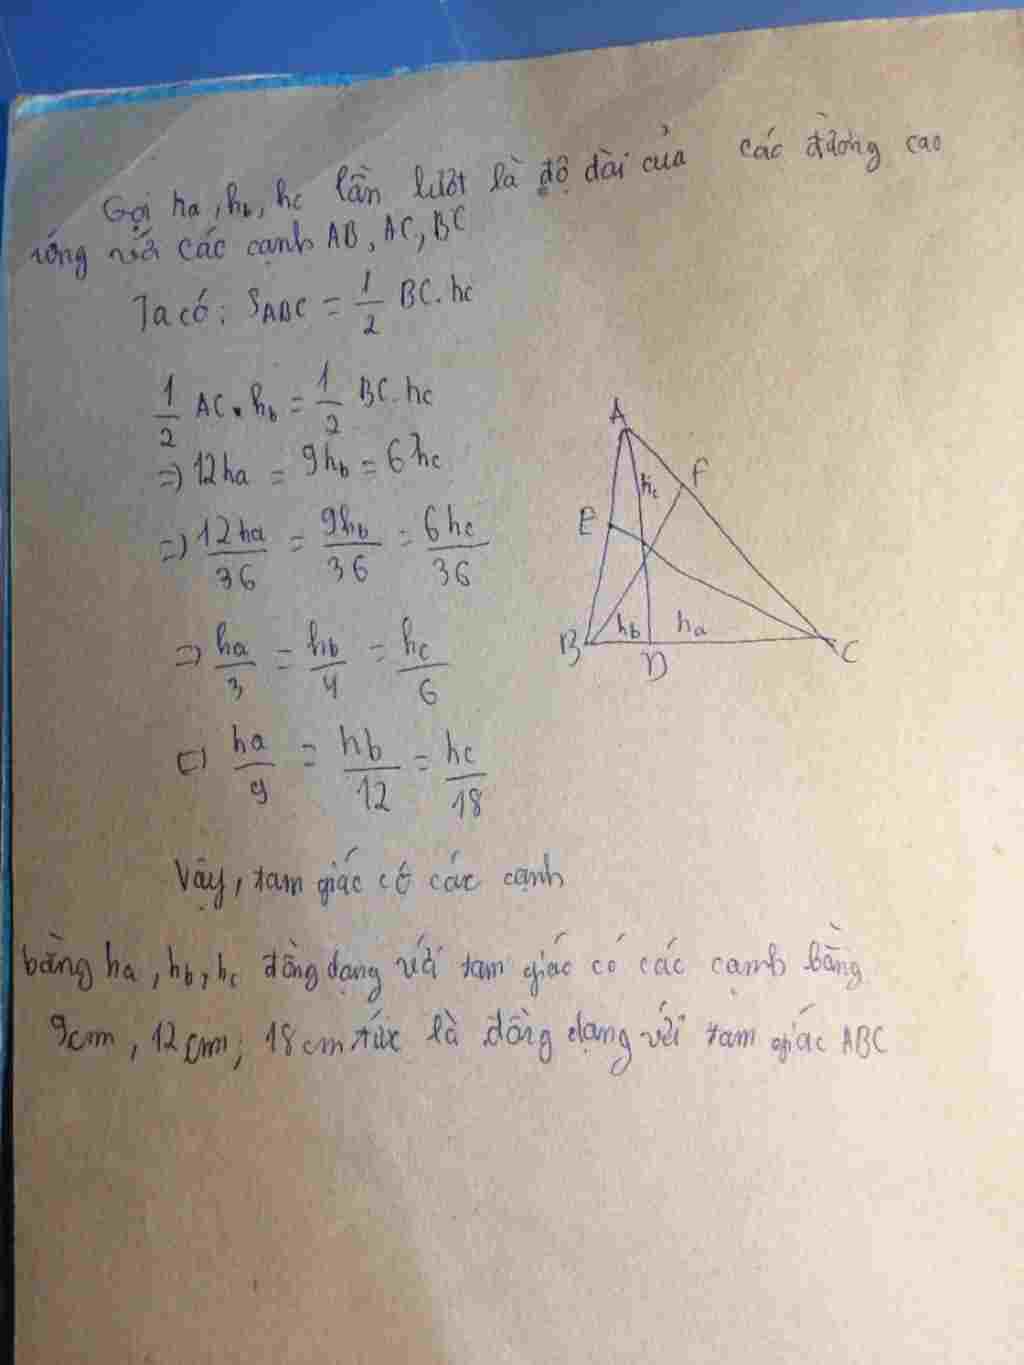 Gọi ha, hb, hc lần lượt là độ dài của các đường cao
ứng với các cạnh AB, AC, BC
Ta có: SABC = 1/2 BC. hc
1/2 AC. hb = 1/2 BC. hc
=> 12ha = 9hb = 6hc
=> 12ha/36 = 9hb/36 = 6hc/36
=> ha/3 = hb/4 = hc/6
<=> ha/9 = hb/12 = hc/18
Vậy, tam giác có các cạnh
bằng ha, hb, hc đồng dạng với tam giác có các cạnh bằng
9cm, 12cm, 18cm tức là đồng dạng với tam giác ABC
A
F
hc
E
hb
ha
B
D
C